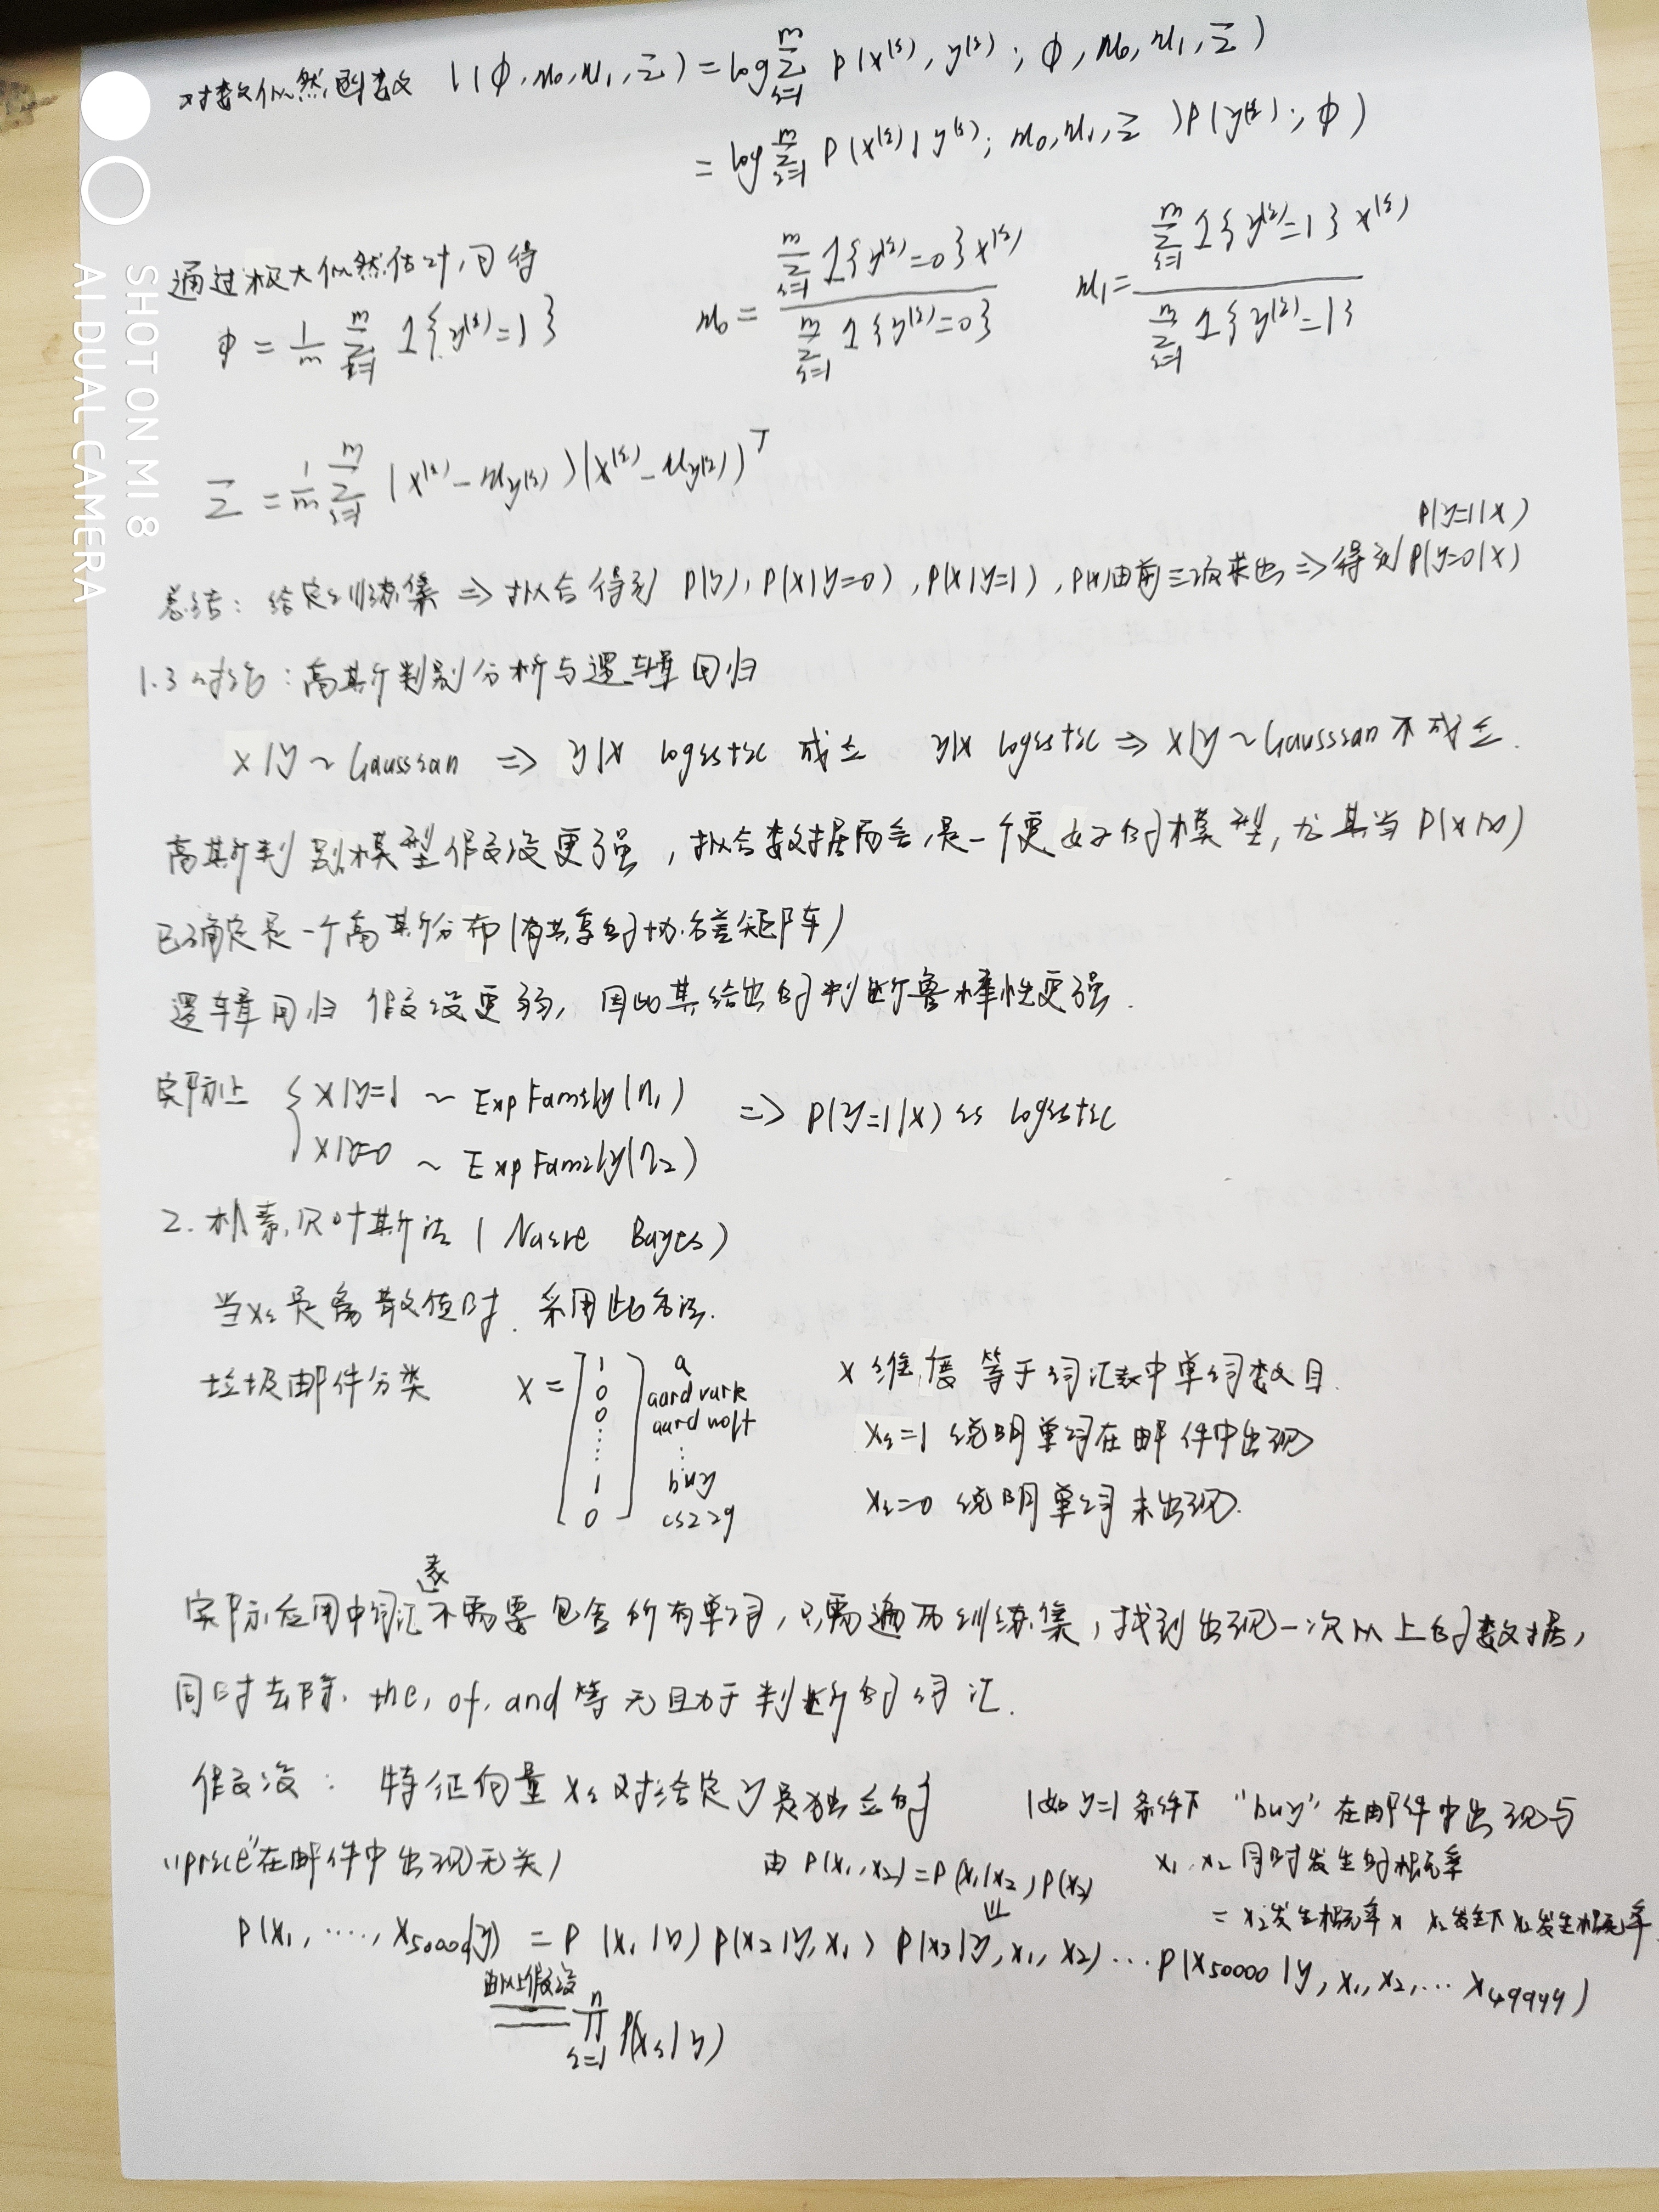 SHOT ON MI 8
AI DUAL CAMERA
对数似然函数 l(φ, μ₀, μ₁, Σ) = log ∑_{i=1}^{m} P(x⁽ⁱ⁾, y⁽ⁱ⁾; φ, μ₀, μ₁, Σ)
= log ∑_{i=1}^{m} P(x⁽ⁱ⁾|y⁽ⁱ⁾; μ₀, μ₁, Σ) P(y⁽ⁱ⁾; φ)
通过极大似然估计,可得
φ = 1/m ∑_{i=1}^{m} 1{y⁽ⁱ⁾=1} μ₀ = ∑_{i=1}^{m} 1{y⁽ⁱ⁾=0}x⁽ⁱ⁾ / ∑_{i=1}^{m} 1{y⁽ⁱ⁾=0} μ₁ = ∑_{i=1}^{m} 1{y⁽ⁱ⁾=1}x⁽ⁱ⁾ / ∑_{i=1}^{m} 1{y⁽ⁱ⁾=1}
Σ = 1/m ∑_{i=1}^{m} (x⁽ⁱ⁾ - μ_{y⁽ⁱ⁾})(x⁽ⁱ⁾ - μ_{y⁽ⁱ⁾})ᵀ
P(y=1|x)
总结: 给定训练集 ⇒ 拟合得到 P(y), P(x|y=0), P(x|y=1), P(x)由前三项求出 ⇒ 得到 P(y=0|x)
1.3 讨论: 高斯判别分析与逻辑回归
x|y ~ Gaussian ⇒ y|x logistic 成立 y|x logistic ⇒ x|y ~ Gaussian 不成立.
高斯判别模型假设更强, 拟合数据而言,是一个更好的模型, 尤其当 P(x|y)
已确定是一个高斯分布(有共享的协方差矩阵)
逻辑回归 假设更弱, 因此其给出的判断鲁棒性更强.
实际上 { x|y=1 ~ ExpFamily(η₁) ⇒ P(y=1|x) is logistic
x|y=0 ~ ExpFamily(η₂)
2. 朴素贝叶斯法 (Naive Bayes)
当xᵢ是离散值时. 采用此方法.
垃圾邮件分类 x = [1 0 0 ⋮ 1 0]
a
aardvark
aardwolf
⋮
buy
cs229
x 维度 等于词汇表中单词数目.
xᵢ=1 说明单词在邮件中出现
xᵢ=0 说明单词未出现.
实际应用中词汇表不需要包含所有单词, 只需遍历训练集, 找到出现一次以上的数据,
同时去除. the, of, and 等无助于判断的词汇.
假设: 特征向量 xᵢ 对给定 y 是独立的 (如 y=1 条件下 "buy" 在邮件中出现与
"price"在邮件中出现无关)
由 P(x₁, x₂) = P(x₁|x₂)P(x₂)
x₁, x₂ 同时发生的概率
= x₂发生概率 × x₂发生下x₁发生概率.
P(x₁, ⋯⋯, x₅₀₀₀₀|y) = P(x₁|y) P(x₂|y, x₁) P(x₃|y, x₁, x₂) ⋯ P(x₅₀₀₀₀|y, x₁, x₂, ⋯ x₄₉₉₉₉)
由以上假设
= ∏_{i=1}^{n} P(xᵢ|y)